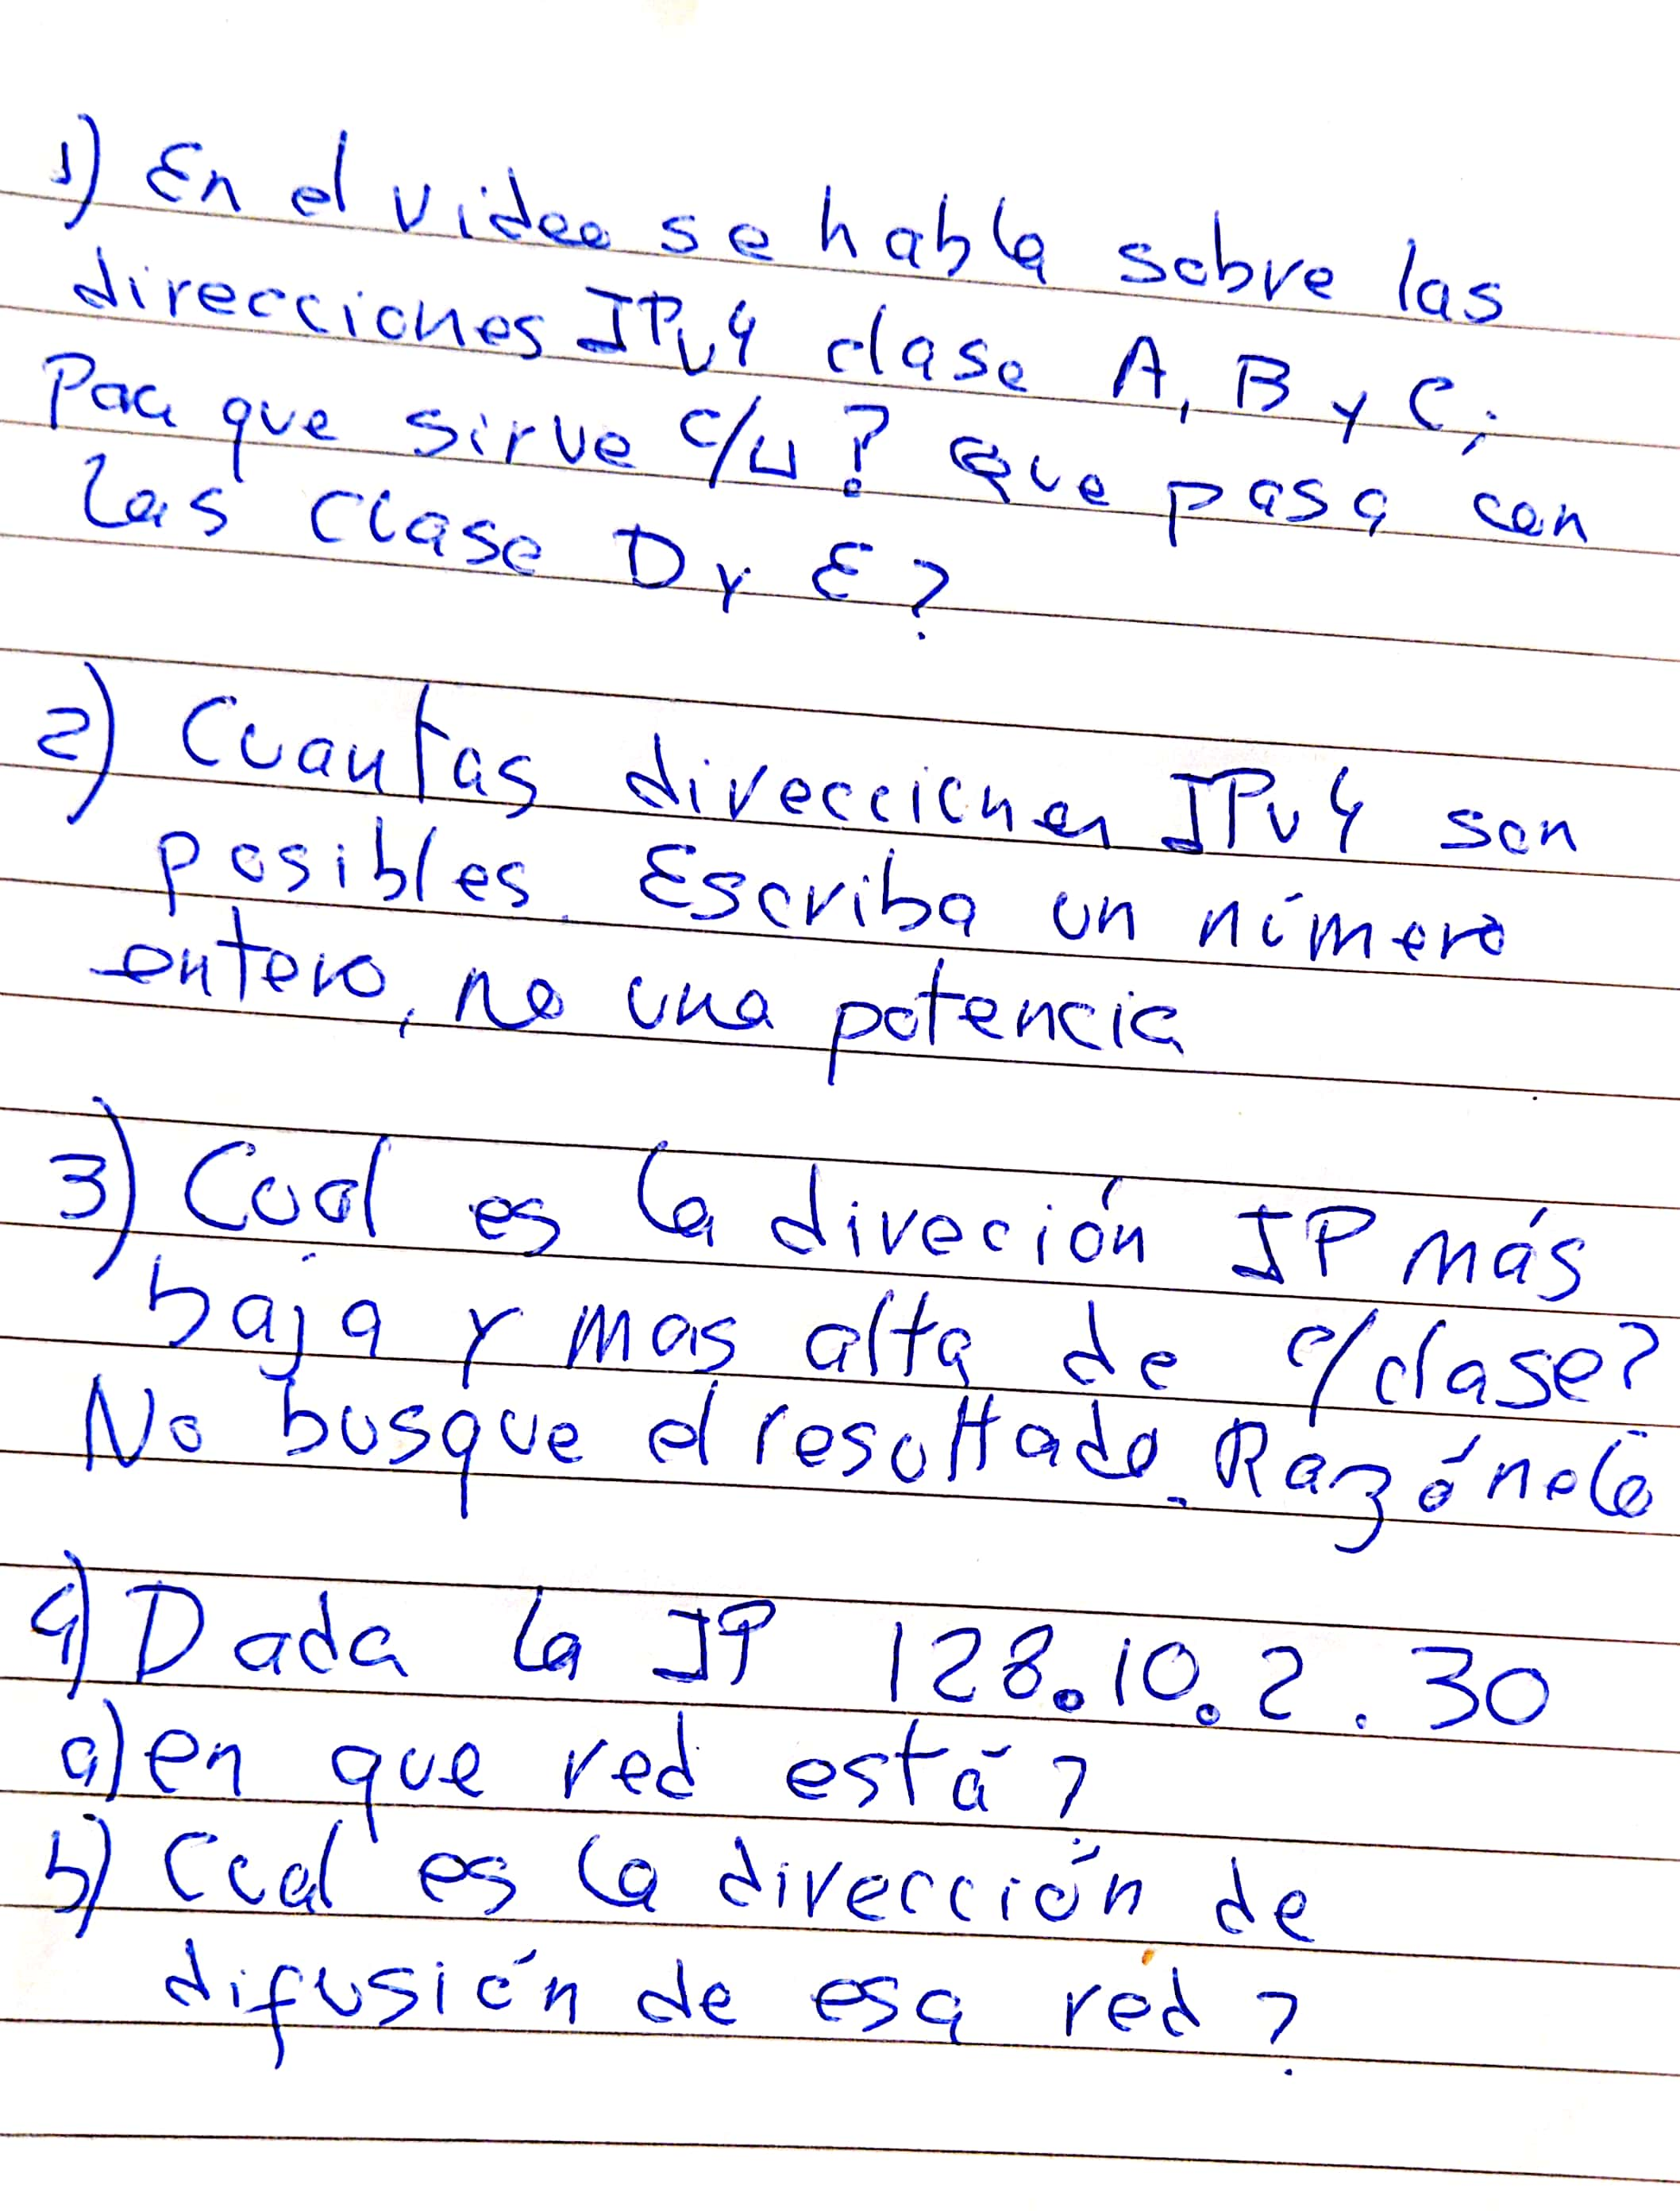 1) En el video se habla sobre las
direcciones IPv4 clase A, B y C,
Para que sirve c/u? Que pasa con
las clase D y E?
2) Cuantas direcciones IPv4 son
posibles. Escriba un número
entero, no una potencia
3) Cual es la direción IP más
baja y mas alta de c/clase?
No busque el resultado. Razónelo
4) Dada la IP 128.10.2.30
a) en que red está?
b) Cual es la dirección de
difusión de esa red?